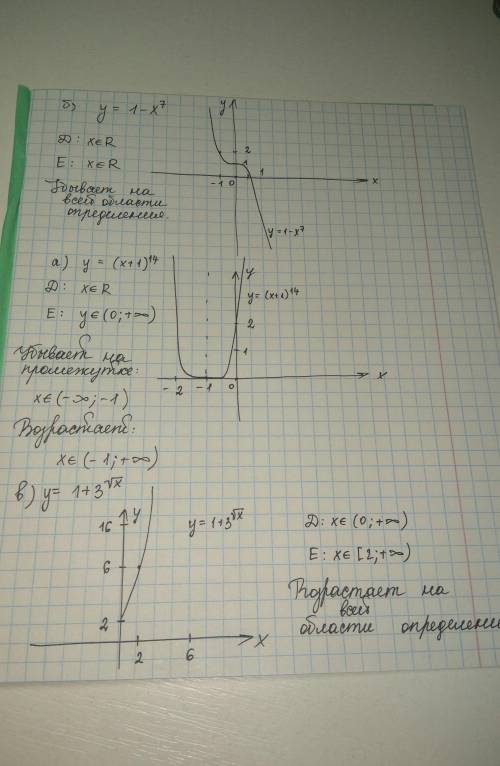 б) y = 1 - x⁷
D: x∈R
E: x∈R
Убывает на
всей области
определения.
y
2
1
-1 0 1 x
y = 1-x⁷
а) y = (x+1)¹⁴
D: x∈R
E: y∈(0;+∞)
Убывает на
промежутке:
x∈(-∞;-1)
Возрастает:
x∈(-1;+∞)
y
y = (x+1)¹⁴
2
1
-2 -1 0 x
в) y = 1+3^√x
y
16
6
2
2 6 x
y = 1+3^√x
D: x∈(0;+∞)
E: x∈[2;+∞)
Возрастает на
всей
области определени